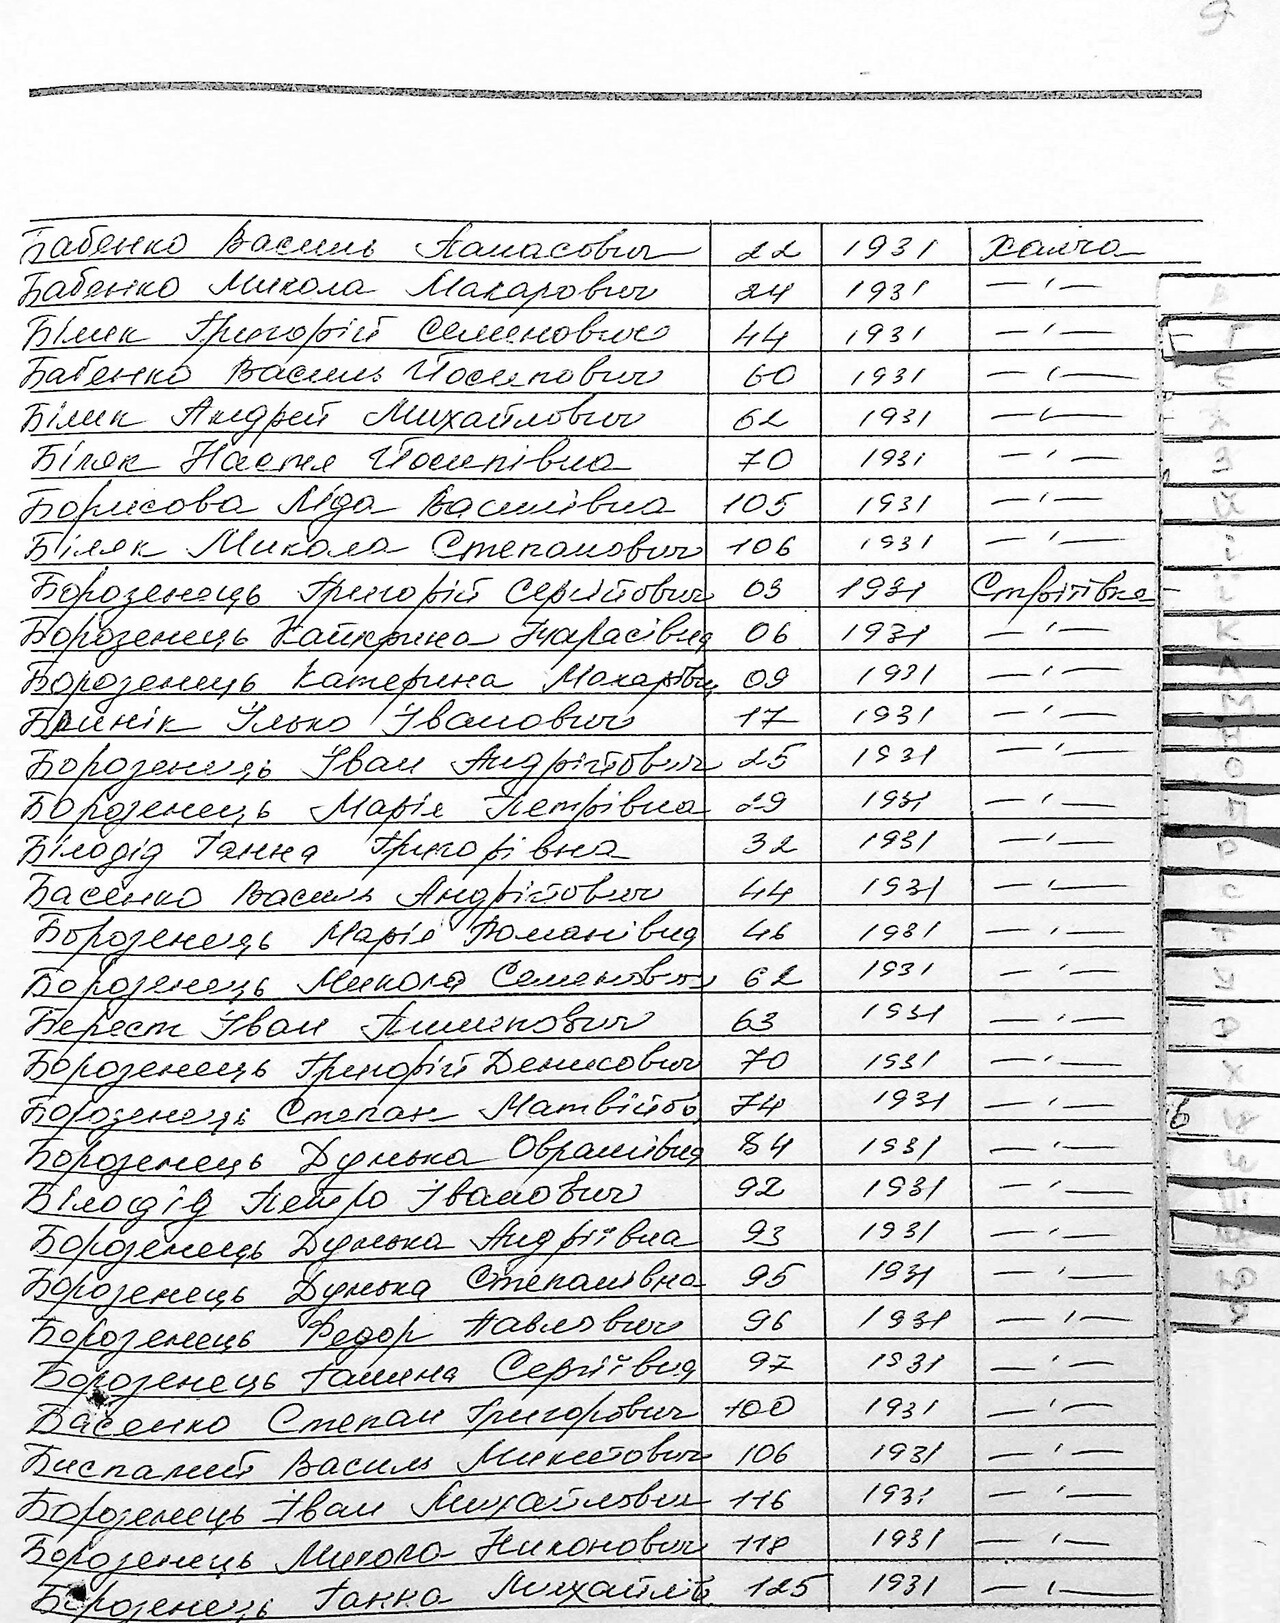 9
Бабенко Василь Панасович 22 1931 Халча
Бабенко Микола Макарович 24 1931 — ' —
Білик Григорій Семенович 44 1931 — ' —
Бабенко Василь Йосипович 60 1931 — ' —
Білик Андрей Михайлович 62 1931 — ' —
Біляк Настя Йосипівна 70 1931 — ' —
Борисова Ліда Василівна 105 1931 — ' —
Біляк Микола Степанович 106 1931 — ' —
Борозенець Григорій Сергійович 03 1931 Стрітівка
Борозенець Тарасівна 06 1931 — ' —
Борозенець Катерина Макарівн 09 1931 — ' —
Ілько Іванович 17 1931 — ' —
Борозенець Іван Андрійович 25 1931 — ' —
Борозенець Марія Петрівна 29 1931 — ' —
Білодід Ганна Григорівна 32 1931 — ' —
Басенко Василь Андрійович 44 1931 — ' —
Борозенець Марія Романівна 46 1931 — ' —
Борозенець Микола Семенович 62 1931 — ' —
Берест Іван Пилипович 63 1931 — ' —
Борозенець Григорій Денисович 70 1931 — ' —
Борозенець Степан Матвійов 74 1931 — ' —
Борозенець Дунька Оврамівна 84 1931 — ' —
Білодід Петро Іванович 92 1931 — ' —
Борозенець Дунька Андріївна 93 1931 — ' —
Борозенець Дунька Степанівна 95 1931 — ' —
Борозенець Федор Павлович 96 1931 — ' —
Борозенець Галина Сергіївна 97 1931 — ' —
Басенко Степан Григорович 100 1931 — ' —
Василь Микитович 106 1931 — ' —
Борозенець Іван Михайлович 116 1931 — ' —
Борозенець Микола Никонович 118 1931 — ' —
Борозенець Ганна Михайлів 125 1931 — ' —